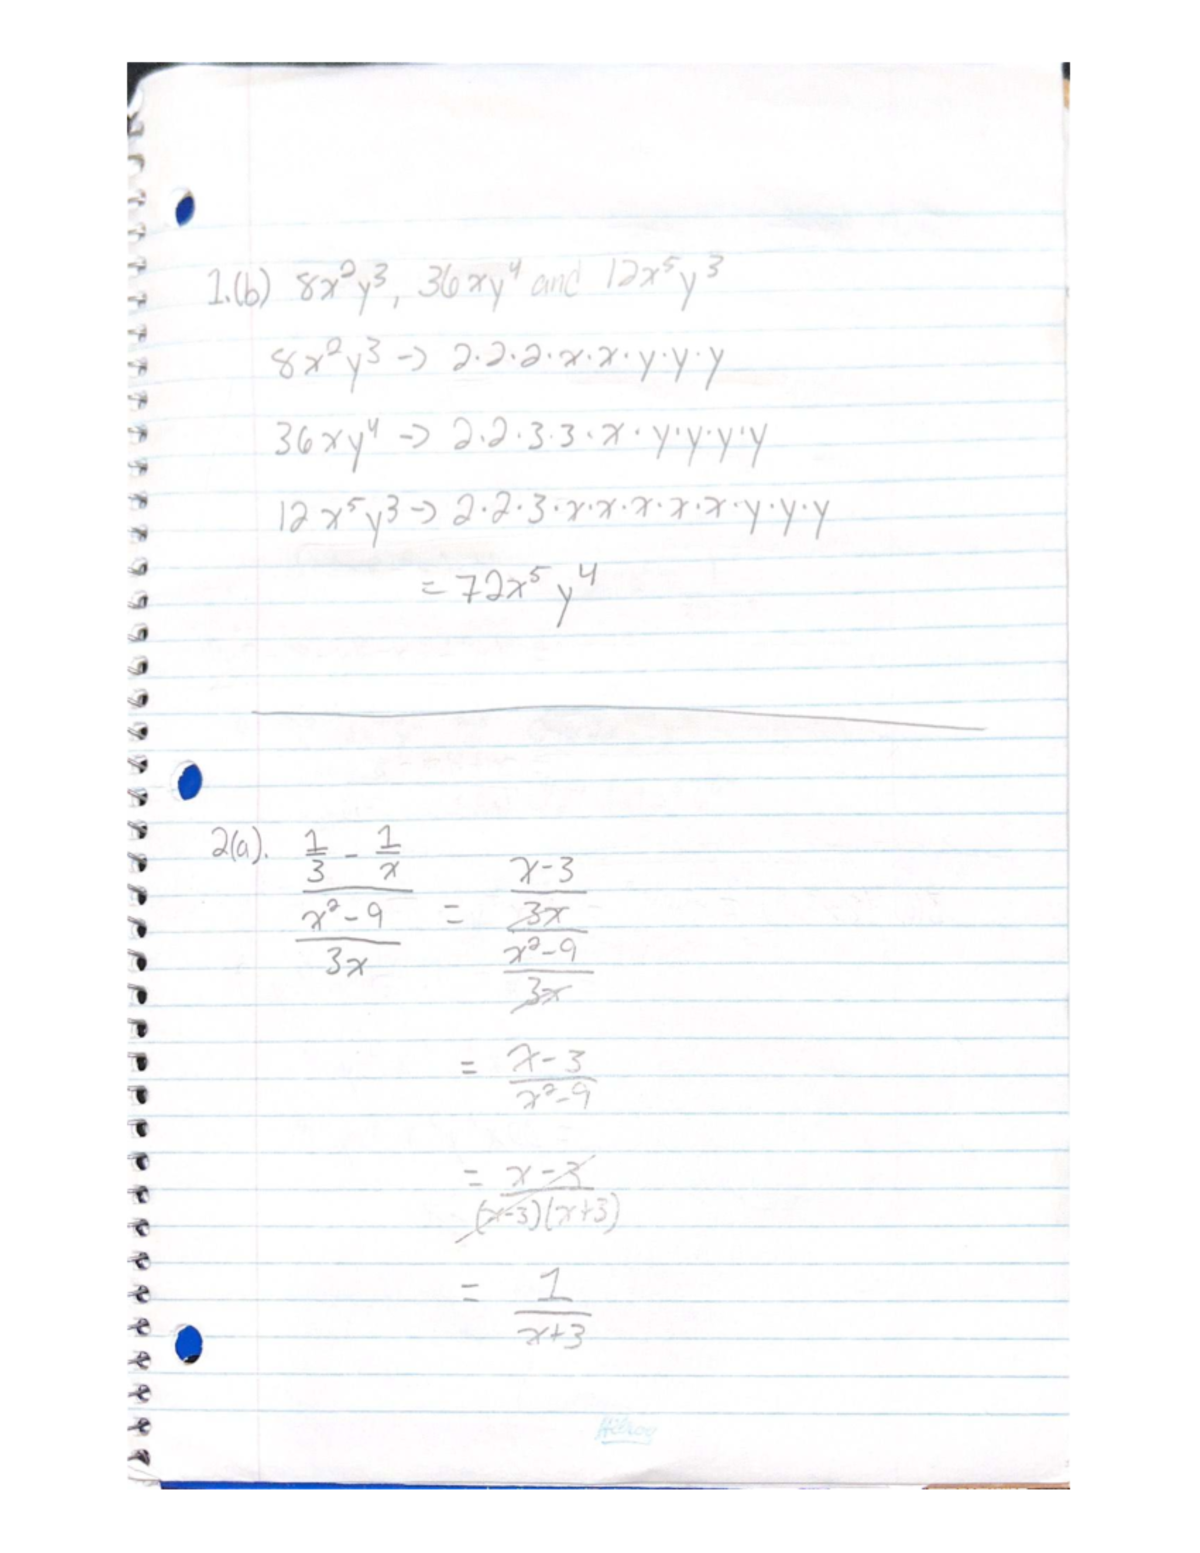 1.(b) 8x²y³, 36xy⁴ and 12x⁵y³
8x²y³ -> 2·2·2·x·x·y·y·y
36xy⁴ -> 2·2·3·3·x·y·y·y·y
12x⁵y³ -> 2·2·3·x·x·x·x·x·y·y·y
= 72x⁵y⁴
2(a). (1/3 - 1/x)/((x²-9)/3x) = ((x-3)/3x)/((x²-9)/3x)
= (x-3)/(x²-9)
= (x-3)/((x-3)(x+3))
= 1/(x+3)
Hilroy